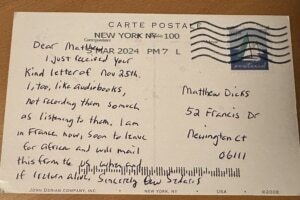 CARTE POSTALE
Correspondance
NEW YORK NY 100
5 MAR 2024 PM 7 L
Dear Matthew,
I just received your
kind letter of Nov 25th.
I, too, like audiobooks,
not recording them so much
as listening to them. I am
in France now, soon to leave
for Africa and will mail
this from the US when and
if I return alive. Sincerely David Sedaris
Matthew Dicks
52 Francis Dr
Newington Ct
06111
JOHN DERIAN COMPANY, INC.
NEW YORK, NY
USA
©2008